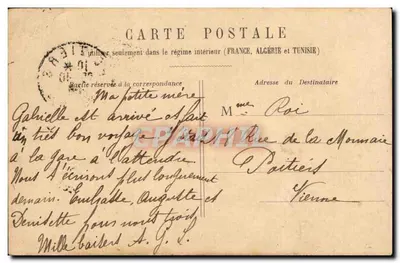 CARTE POSTALE
seulement dans le régime intérieur (FRANCE, ALGÉRIE et TUNISIE)
Partie réservée à la correspondance
Adresse du Destinataire
Ma petite mère
Gabrielle est arrivé et fait
un très bon voyage
à la gare à l'attendre
Nous t'écrirons plus longuement
demain. Embrasse Auguste et
Denisette pour nous trois
Mille baisers A. G. L.
Mme Roi
Rue de la Monnaie
Poitiers
Vienne